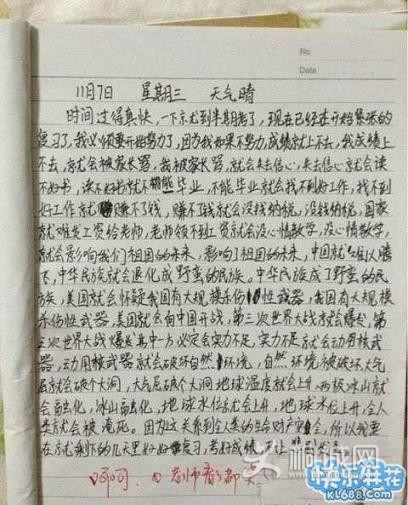 No
Date
11月7日 星期三 天气晴
时间过得真快,一下就到半期考了,现在已经在开始紧张的
复习了,我必须要开始努力了,因为我如果不努力,成绩就上不去,我成绩上
不去,就会被家长骂,我被家长骂,就会失去信心,失去信心就会读
不好书,读不好书就不能毕业,不能毕业就会找不到好工作,找不到
好工作就赚不了钱,赚不了钱就会没钱纳税,没钱纳税,国家
就难发工资给老师,老师领不到工资就会没心情教学,没心情教学,
就会影响我们祖国的未来,影响了祖国的未来,中国就难以腾
飞,中华民族就会退化成野蛮的民族。中华民族成了野蛮的民
族,美国就会怀疑我国有大规模杀伤性武器,我国有大规模
杀伤性武器,美国就会向中国开战,第三次世界大战就会爆发,第
三次世界大战爆发其中一方必定会实力不足,实力不足就会动用核武
器,动用核武器就会破坏自然环境,自然环境被破坏,大气
层就会破个大洞,大气层破个大洞地球温度就会上升,两极冰山就
会融化,冰山融化,地球水位就会上升,地球水位上升,全人
类就会被淹死。因为这关系到全人类的生命财产安全,所以我要
在就剩下的几天里好好复习,考好成绩,不让
呵呵,老师看都
郴城网
快乐麻花
KL688.COM